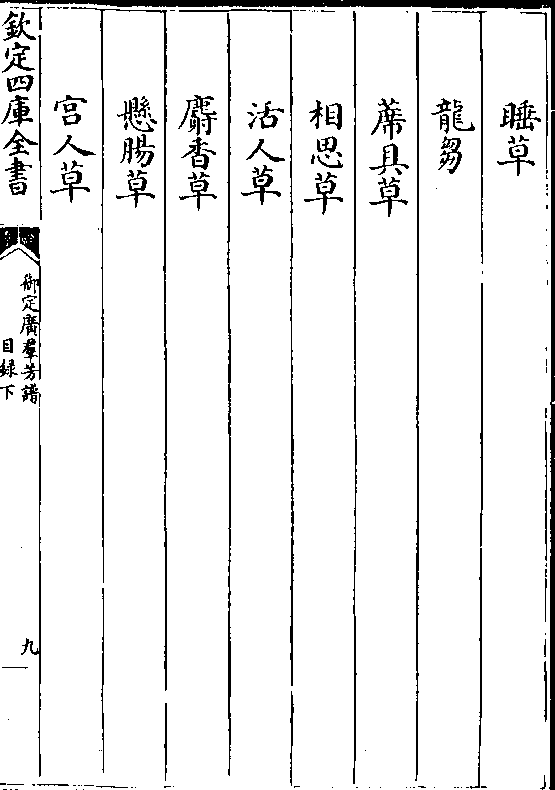 睡草
龍芻
蓆具草
相思草
活人草
麝香草
懸腸草
宫人草
欽定四庫全書
御定廣羣芳譜
目録下
九